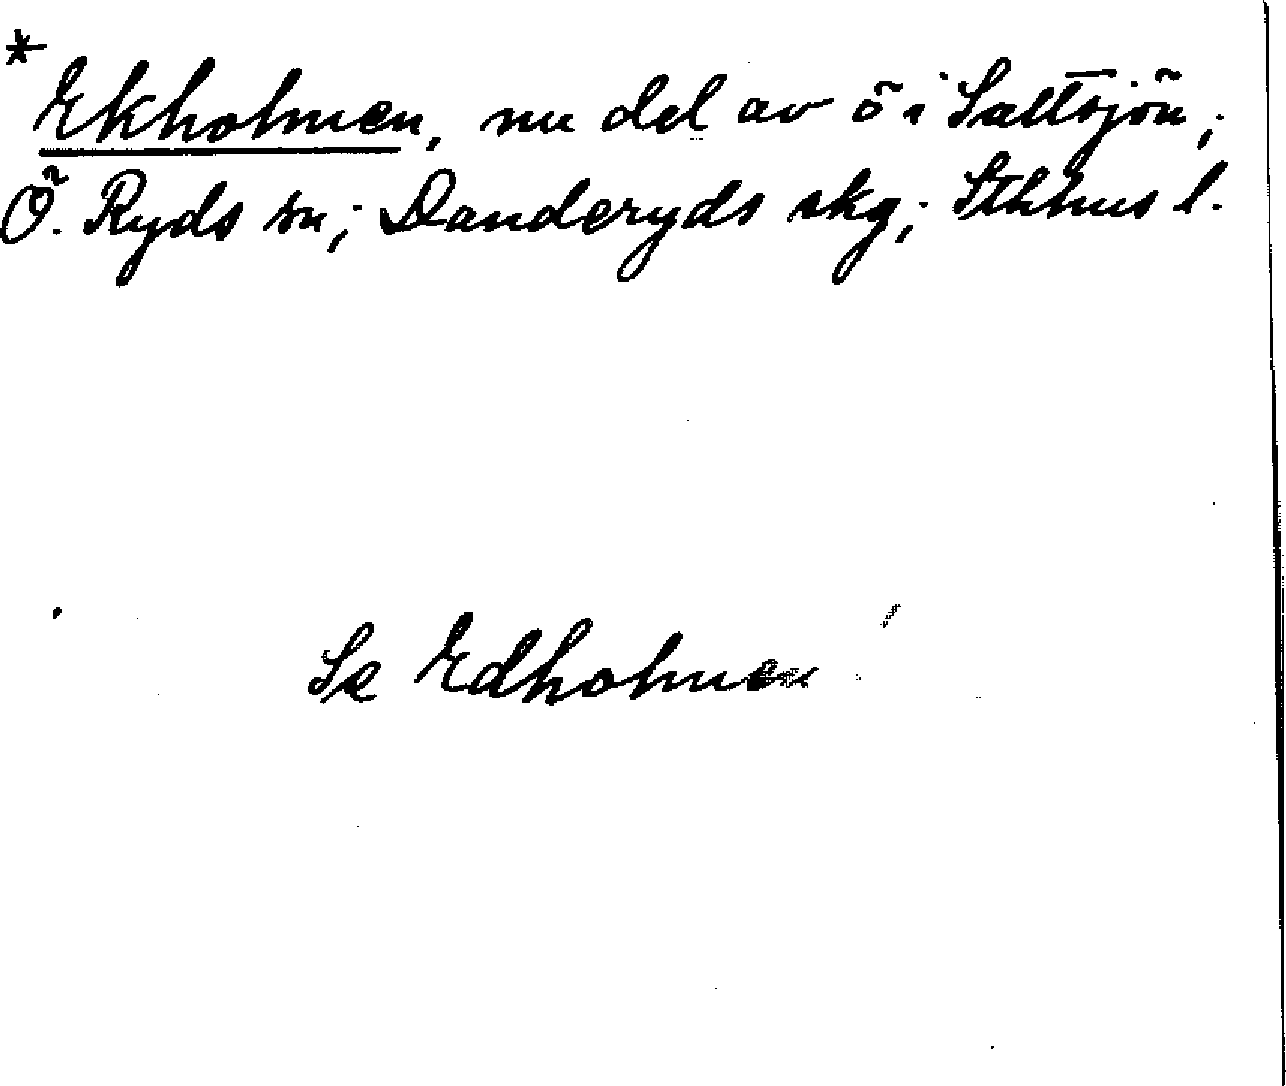 * Ekholmen, nu del av ö i Saltsjön;
Ö. Ryds sn; Danderyds skg; Sthlms l.
Se Edholmen